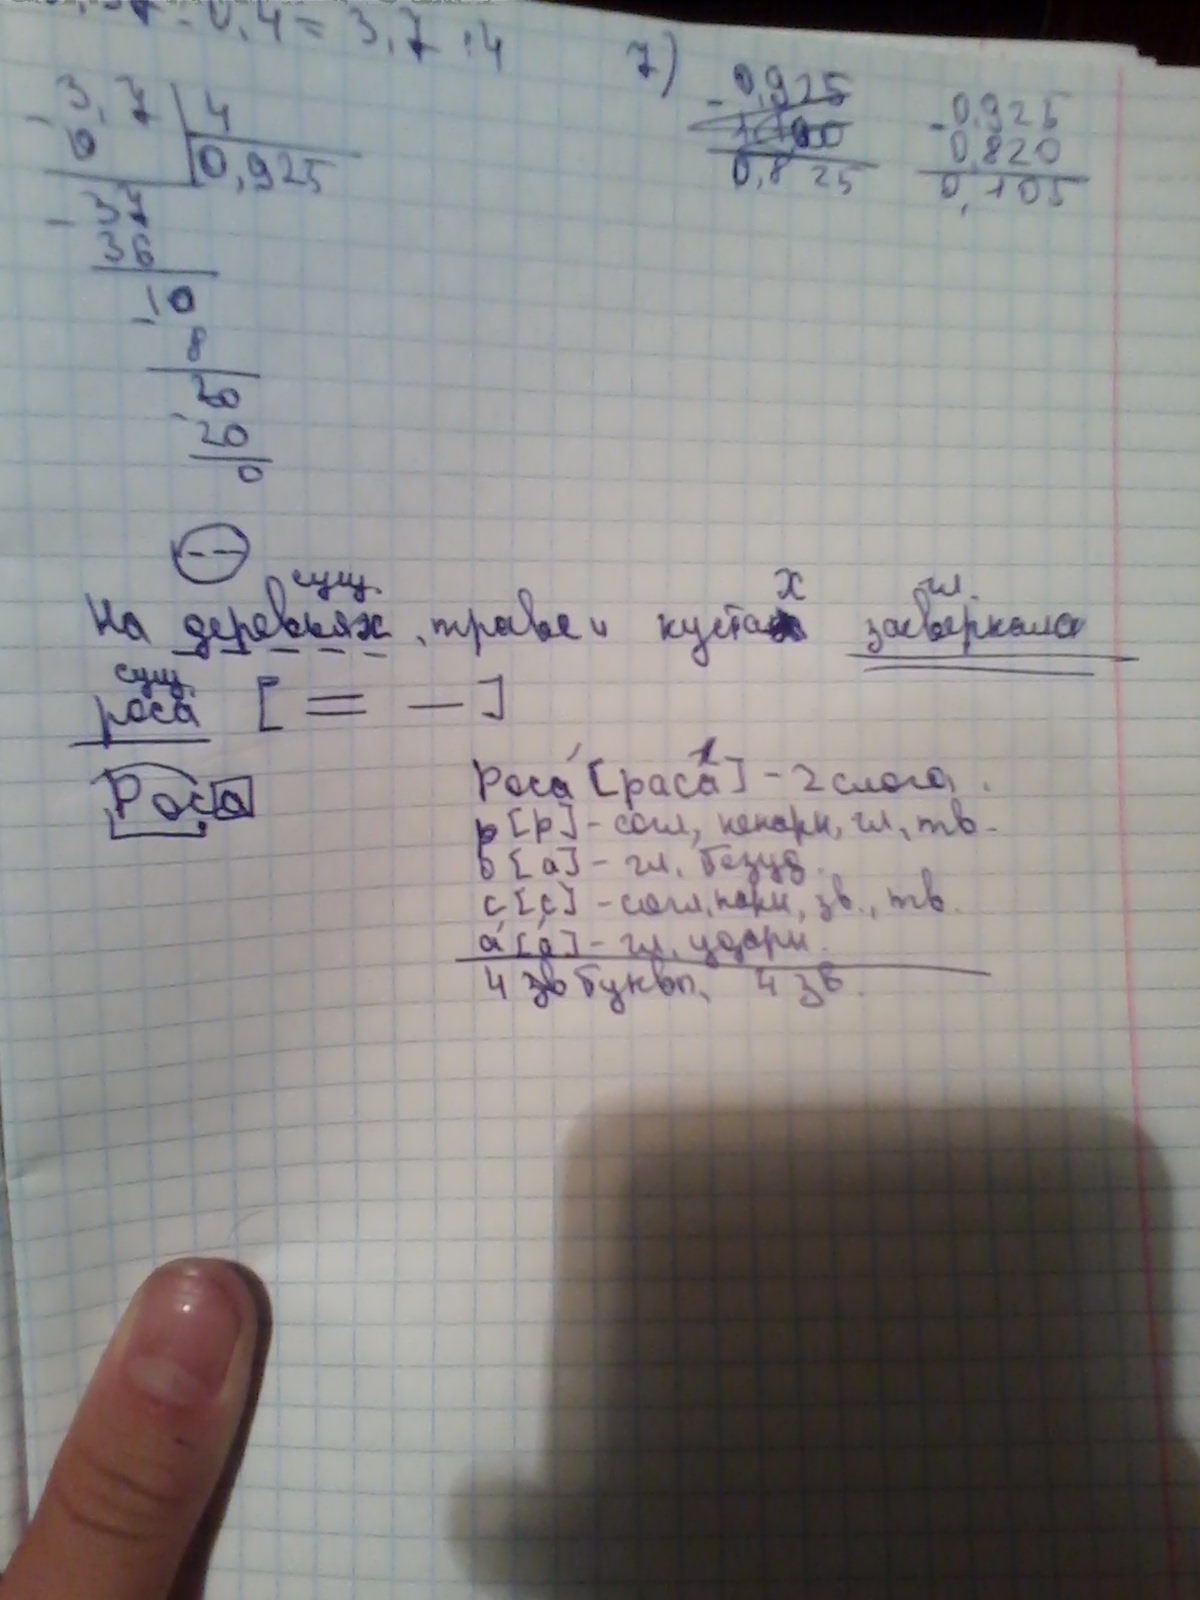 - 0,4 = 3,7 : 4
3,7 | 4
0 | 0,925
- 37
36
- 10
8
- 20
20
0
7)
- 0,925
0,825
- 0,925
0,820
0,105
сущ. х гл.
На деревьях, траве и кустах засверкала
сущ.
роса [ = — ]
Роса
Роса́ [раса́] - 2 слога.
р [р] - согл, непарн, гл, тв.
о [а] - гл, безуд.
с [с] - согл, парн, зв., тв.
а́ [а́] - гл, ударн.
4 зв буквы, 4 зв.